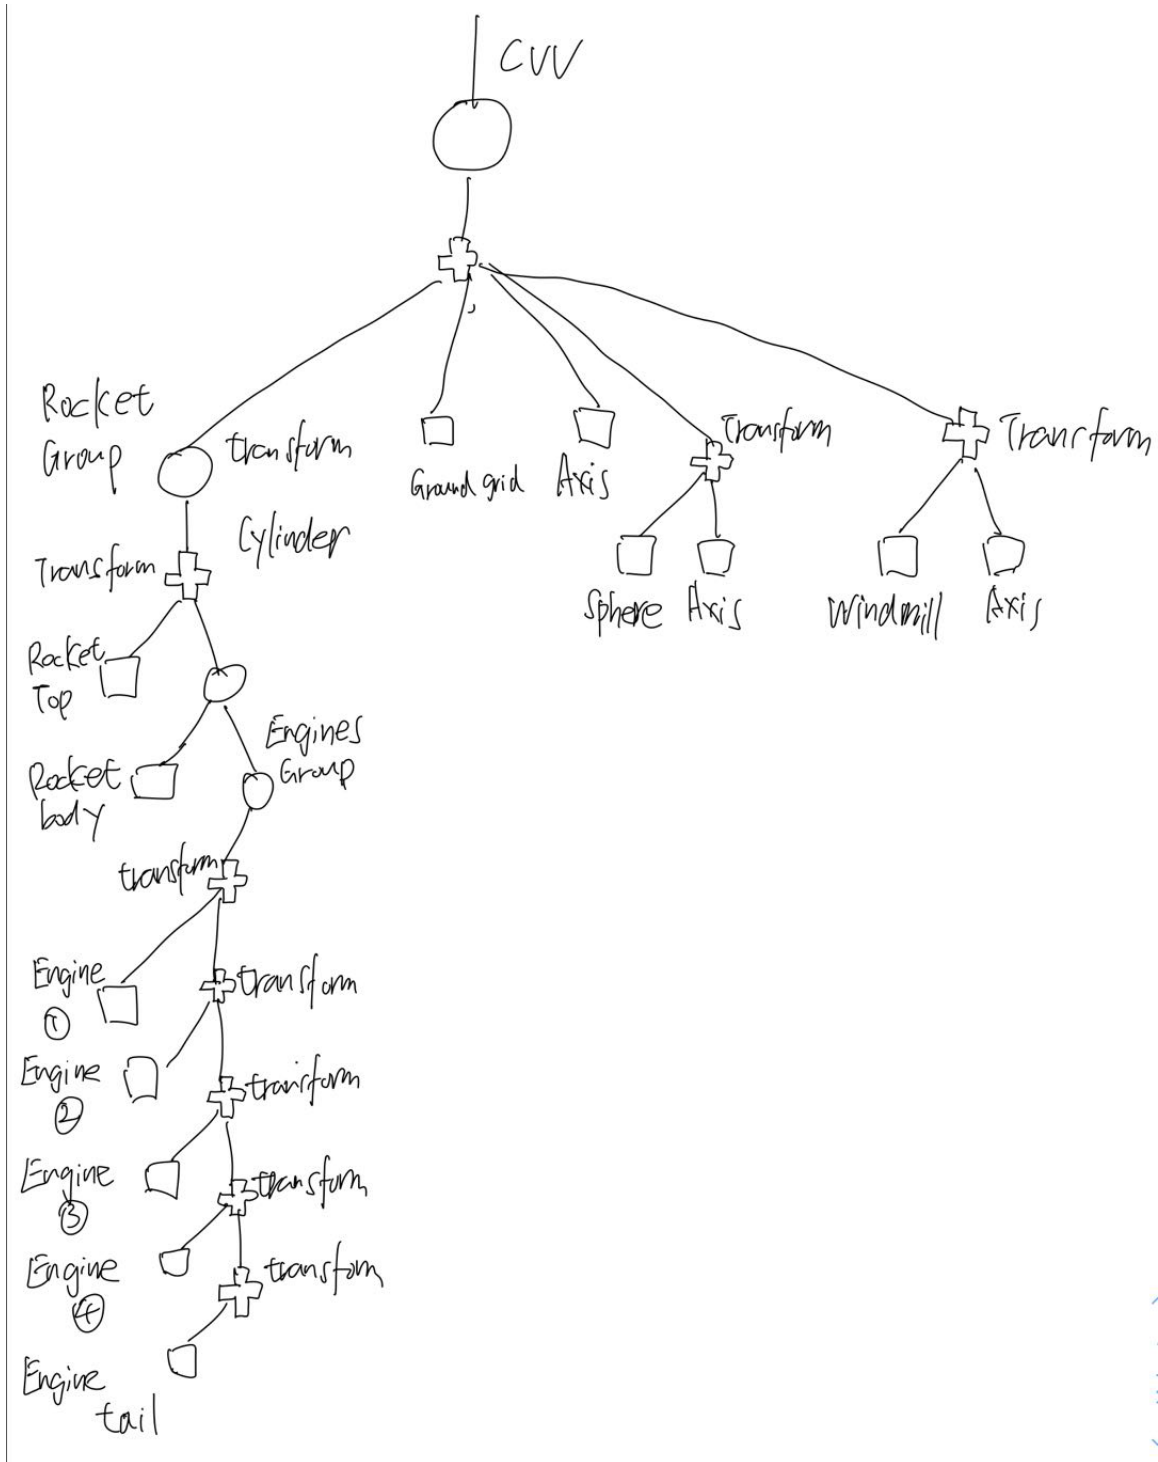 CVV
Rocket
Group
transform
Ground grid
Axis
Transform
Transform
Cylinder
Transform
Sphere
Axis
Windmill
Axis
Rocket
Top
Engines
Group
Rocket
body
transform
Engine
①
transform
Engine
②
transform
Engine
③
transform
Engine
④
transform
Engine
tail